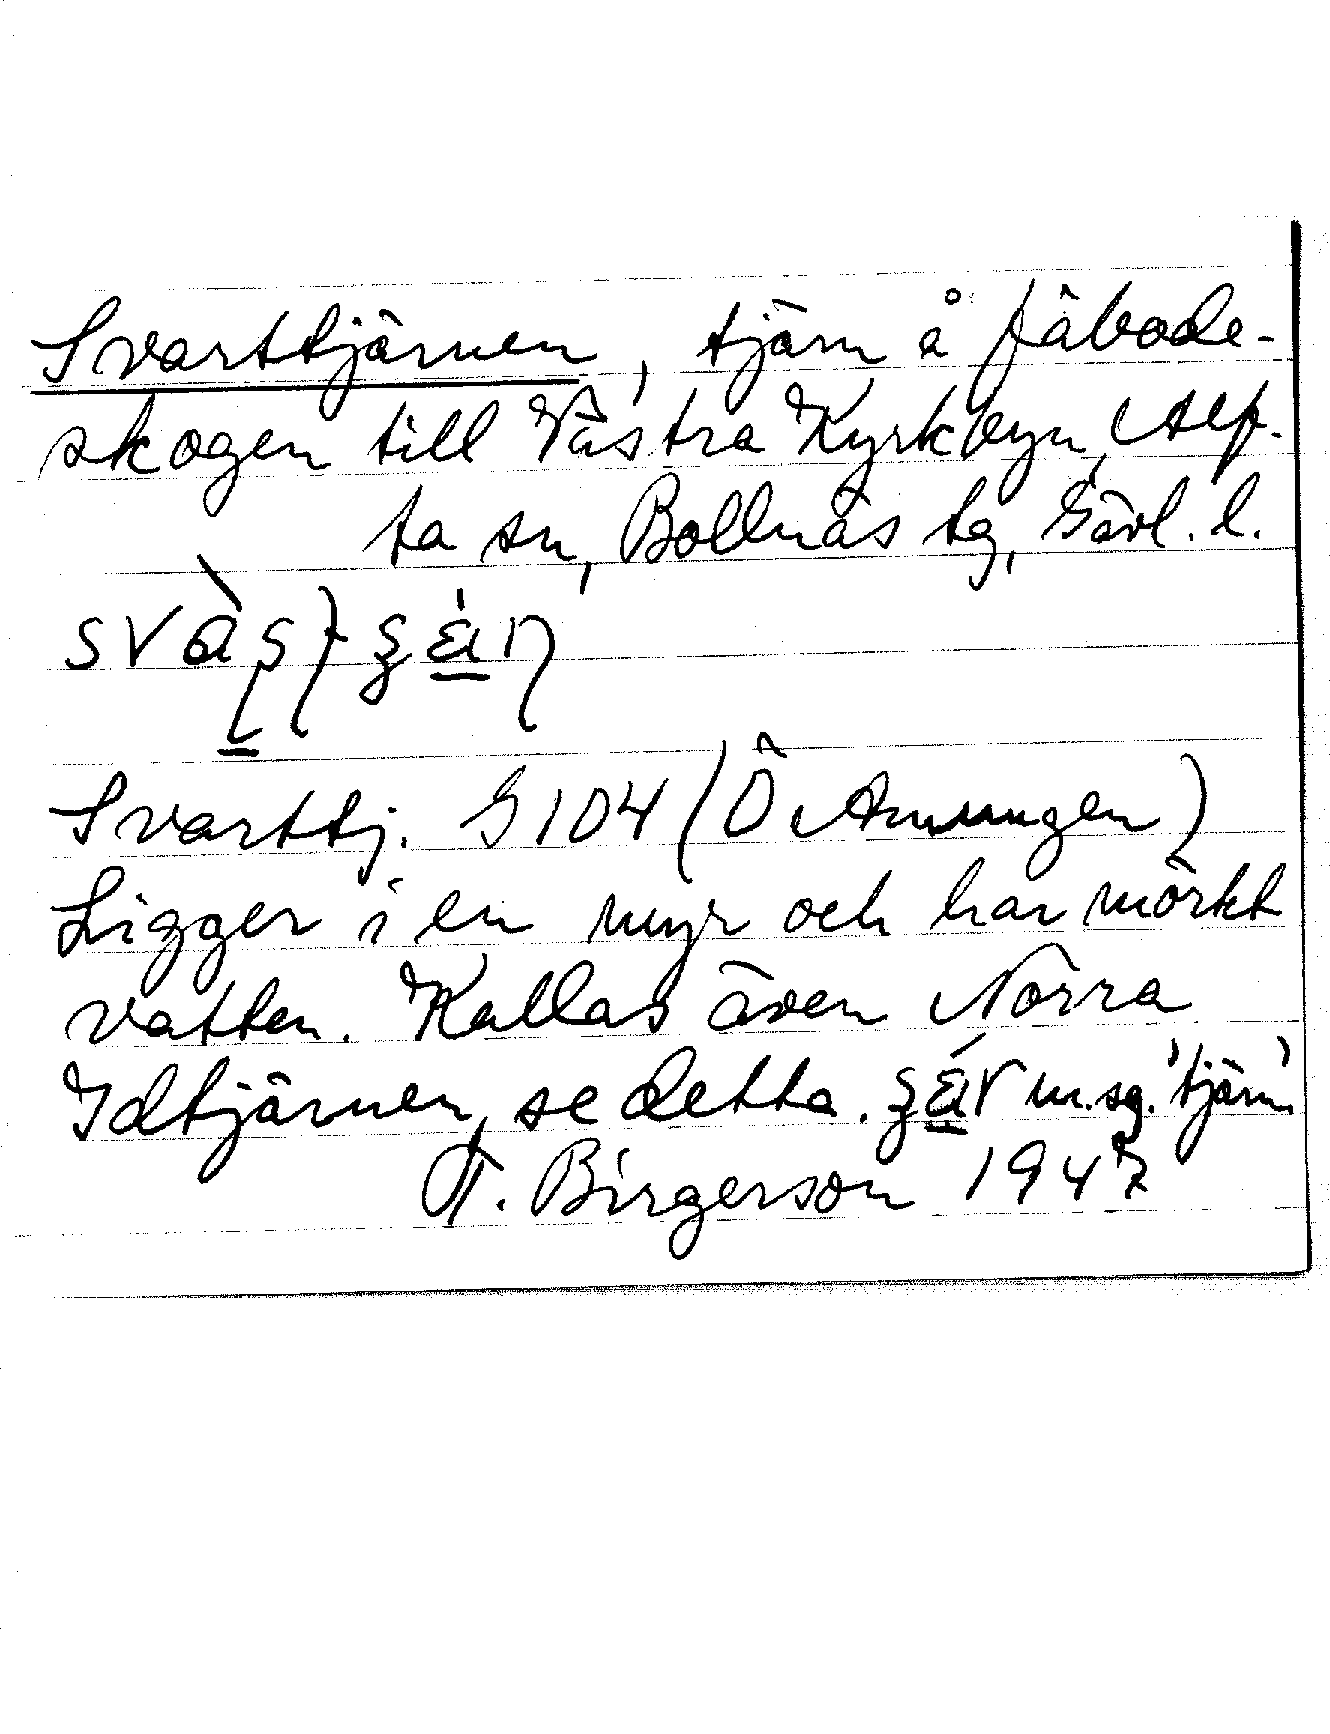 Svarttjärnen, tjärn å fäbode-
skogen till Västra Kyrkbyn, Alf-
ta sn, Bollnäs tg, Gävl. l.
Svarttj. G 104 (Ö Amungen)
Ligger i en myr och har mörkt
vatten. Kallas även Norra
Idtjärnen, se detta. m.sg. 'tjärn'
T. Birgerson 1947